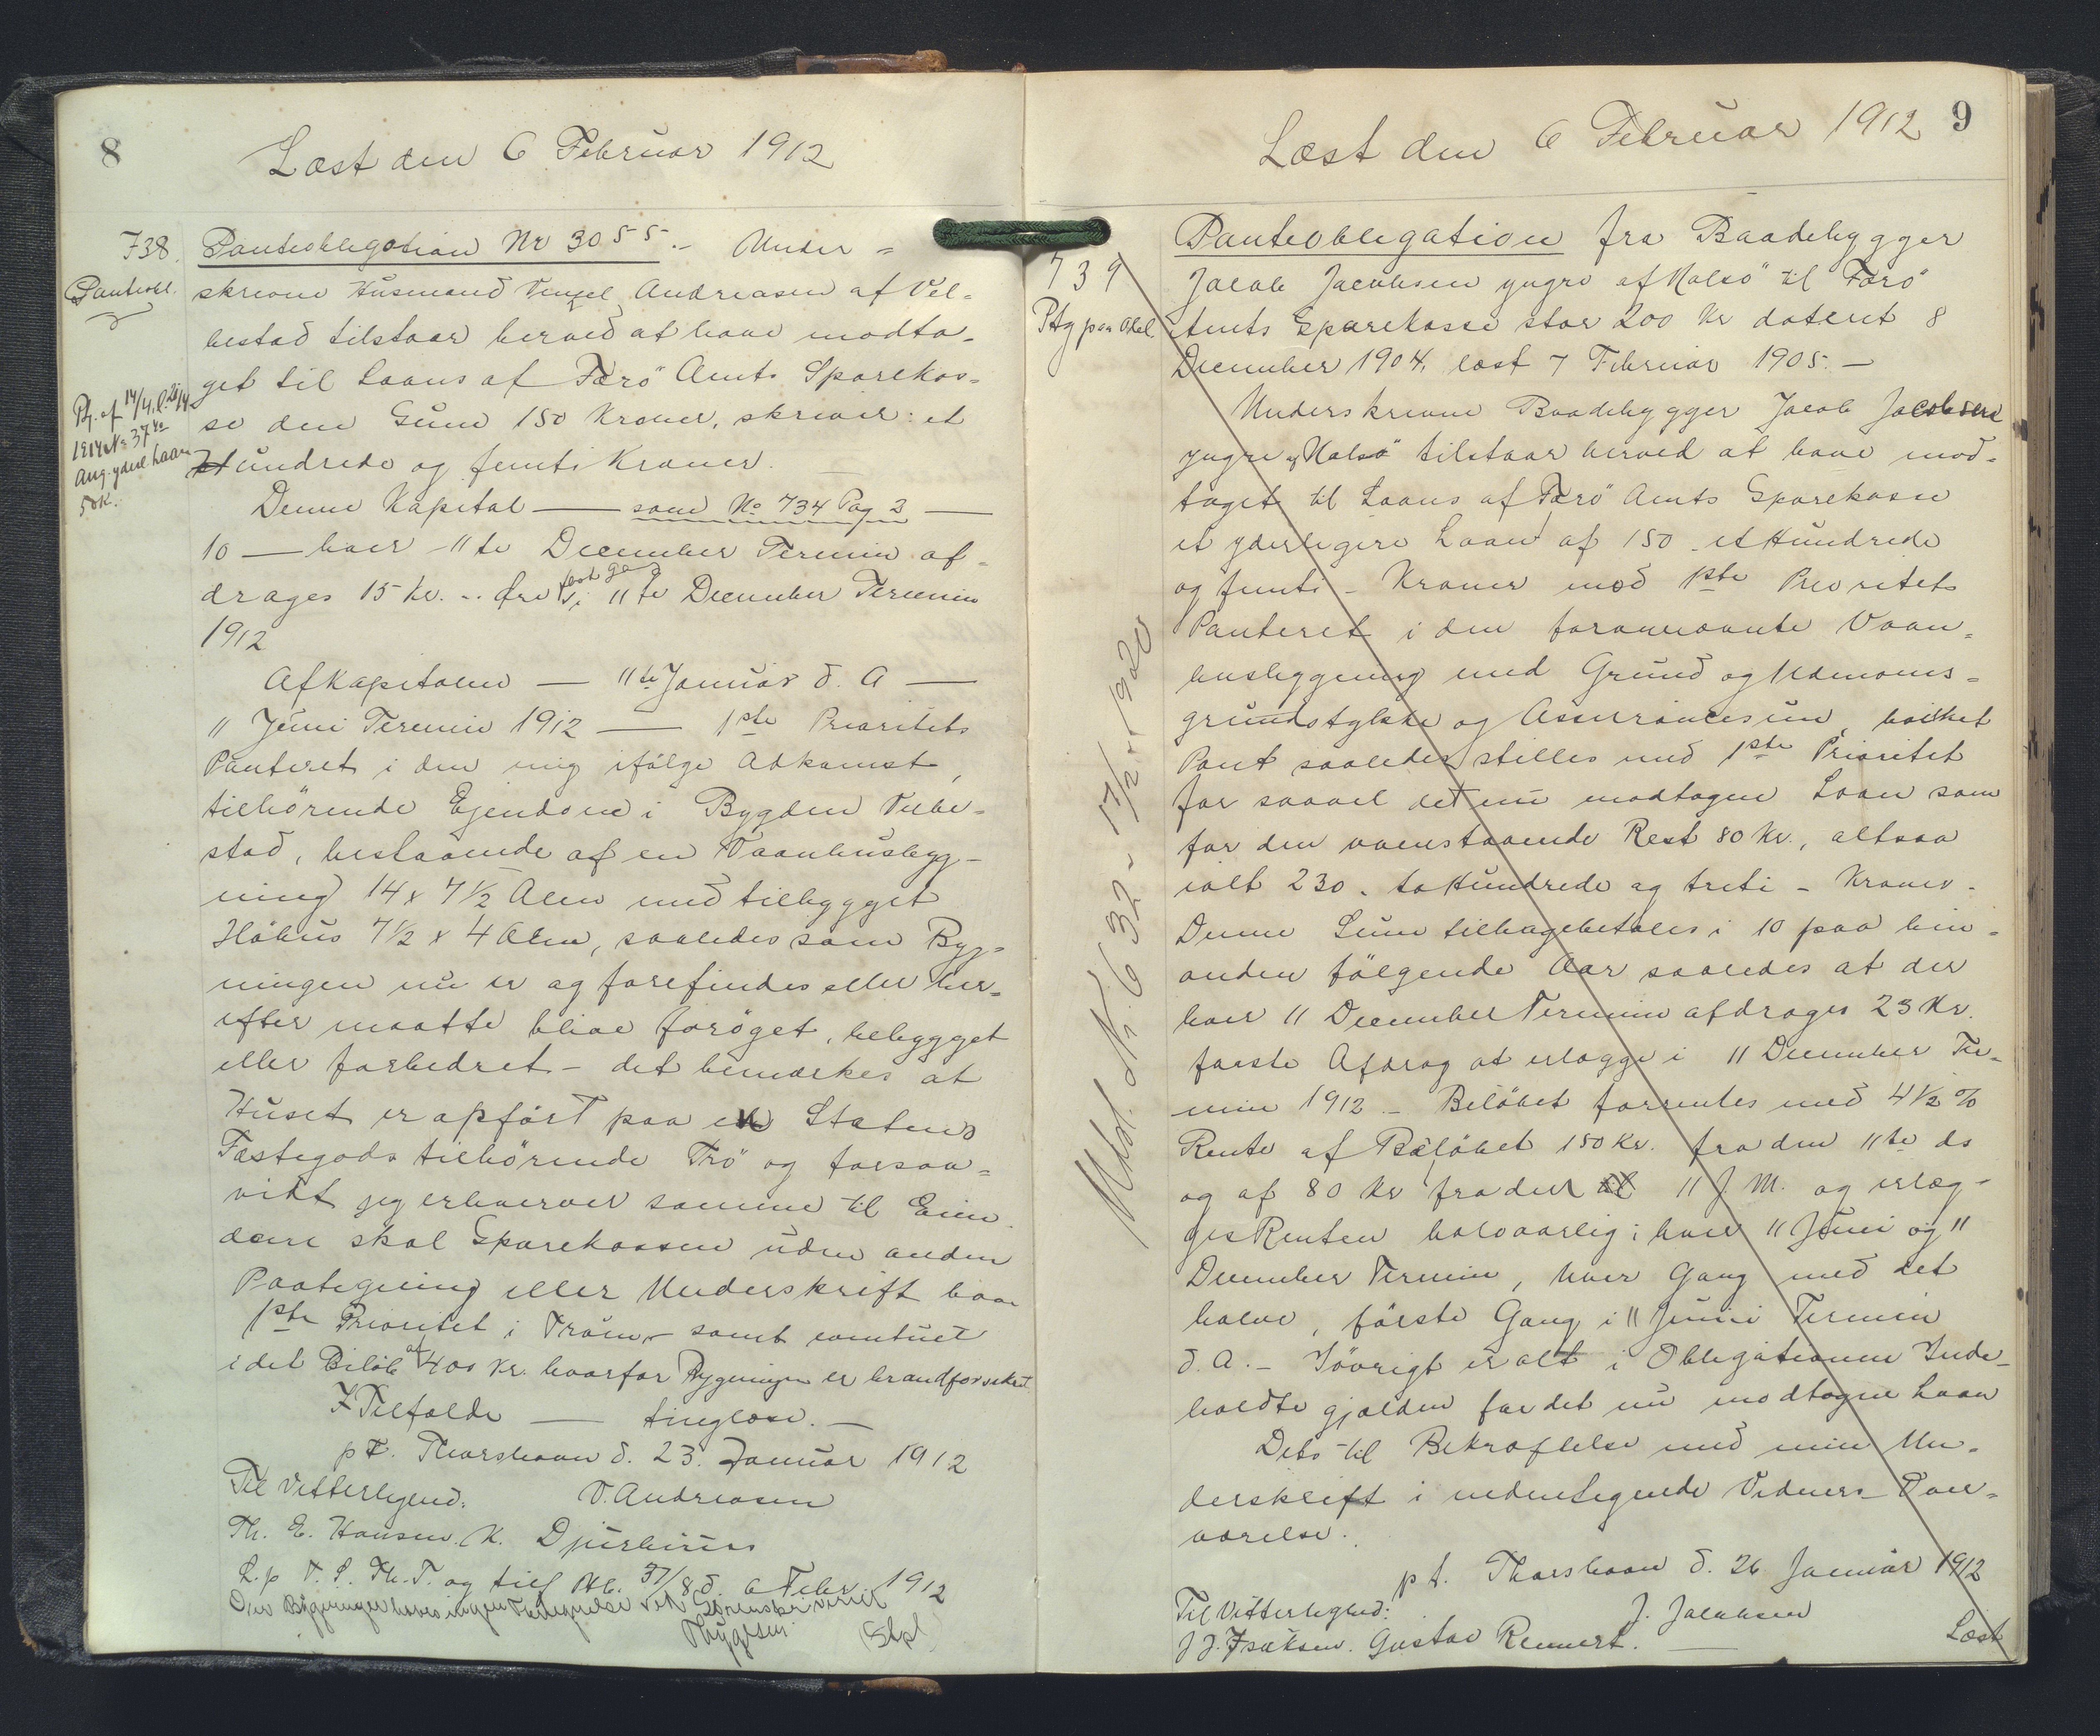 8
Læst den 6 Februar 1912
738.
Panteobl.
Panteobligation Nr 3055.- Under=
skrevne Husmand Vensel Andreasen af Vel=
bestad tilstaar herved at have modta-
get til Laans af Færö Amts Sparekas=
se den Sum 150 Kroner, skriver: et
Hundrede og femti Kroner.
Ptg. af 14/4, l. 21/4
1914 No 37
Ang. yderl. Laan
50 K.
Denne Kapital — som No 734 Pag 3 —
10 — hver 11te December Termin af-
drages 15 Kr. .. Øre first gang i 11te December Termin
1912
Af Kapitalen — 11te Januar d. A —
11 Juni Termin 1912 — 1ste Prioritets
Panteret i den mig ifölge Adkomst,
tilhörende Ejendom i Bygden Velbe-
stad, bestaaende af en Vaanhusbyg-
ning 14 x 7½ Alen med tilbygget
Höhus 7½ x 4 Alen, saaledes som Byg-
ningen nu er og forefindes eller her-
efter maatte blive foröget, bebygget
eller forbedret - det bemærkes at
Huset er opfört paa en Statens
Fæstegods tilhörende Trö og forsaa-
vidt jeg erhverver samme til Eien-
dom skal Sparekassen uden anden
Paategning eller Underskrift have
1ste Prioritet i Tröen - samt eventuel
i det Belöb af 400 Kr. hvorfor Bygningen er brandforsikret
I Tilfælde — tinglæse. —
pt. Thorshavn d. 23. Januar 1912
Til Vitterlighed: V. Andreasen
Th. E. Hansen. K. Djurhuus
L. p V. S. Th. T. og tilf Ptb. 37/8 d. 6 Febr. 1912
Over Bygningen haves ingen Thinglæsning
Trygesen (Stpl)
9
Læst den 6 Februar 1912
739
Ptg paa Obl.
Panteobligation fra Baadebygger
Jacob Jacobsen yngre af Nolsö til Færö
Amts Sparekasse stor 200 Kr dateret 8
December 1904, læst 7 Februar 1905. —
Underskrevne Baadebygger Jacob Jacobsen
yngre af Nolsö tilstaar herved at have mod-
taget til Laans af Færö Amts Sparekasse
et yderligere Laan af 150 - et Hundrede
og femti - Kroner mod 1ste Prioritets
Panteret i den forannævnte Vaan-
husbygning med Grund og Udmarks-
grundstykke og Assurancesum, hvilket
Pant saaledes stilles med 1ste Prioritet
for saavel det nu modtagne Laan som
for den ovenstaaende Rest 80 Kr., altsaa
ialt 230 - to Hundrede og treti - Kroner.
Denne Sum tilbagebetales i 10 paa hin-
anden fölgende Aar saaledes at der
hver 11 December Termin afdrages 23 Kr.
förste Afdrag at erlægge i 11 December Ter-
min 1912. - Belöbet forrentes med 4½ %
Rente af Belöbet 150 Kr. fra den 11te ds
og af 80 Kr fra den 11 f. M. og erlæg-
ges Renten halvaarlig i hver 11 Juni og 11
December Termin, hver Gang med det
halve, förste Gang i 11 Juni Termin
d. A. - Iövrigt er alt i Obligationen Inde-
holdte gjælden for det nu modtagne Laan
Dets til Bekræftelse med min Un-
derskrift i nedentegnede Vidners Over-
værelse.
pt. Thorshavn d. 26 Januar 1912
Til Vitterlighed: J. Jacobsen
J J. Isaksen. Gustav Rennert. —
Læst
Udsl. Nr. 632 - 17/2 - 1920